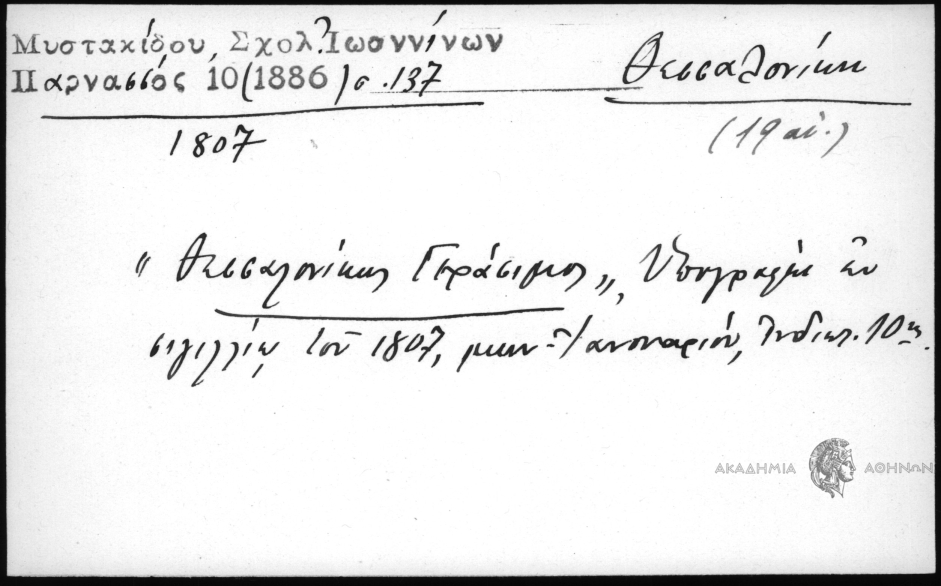 Μυστακίδου, Σχολ. Ἰωαννίνων
Παρνασσός 10(1886) σ. 137
Θεσσαλονίκη
1807
(19 αἰ.)
"Θεσσαλονίκης Γεράσιμος", Ὑπογραφὴ ἐν
σιγιλλίῳ τοῦ 1807, μηνὶ Ἰανουαρίου, Ἰνδικτ. 10ης.
ΑΚΑΔΗΜΙΑ ΑΘΗΝΩΝ